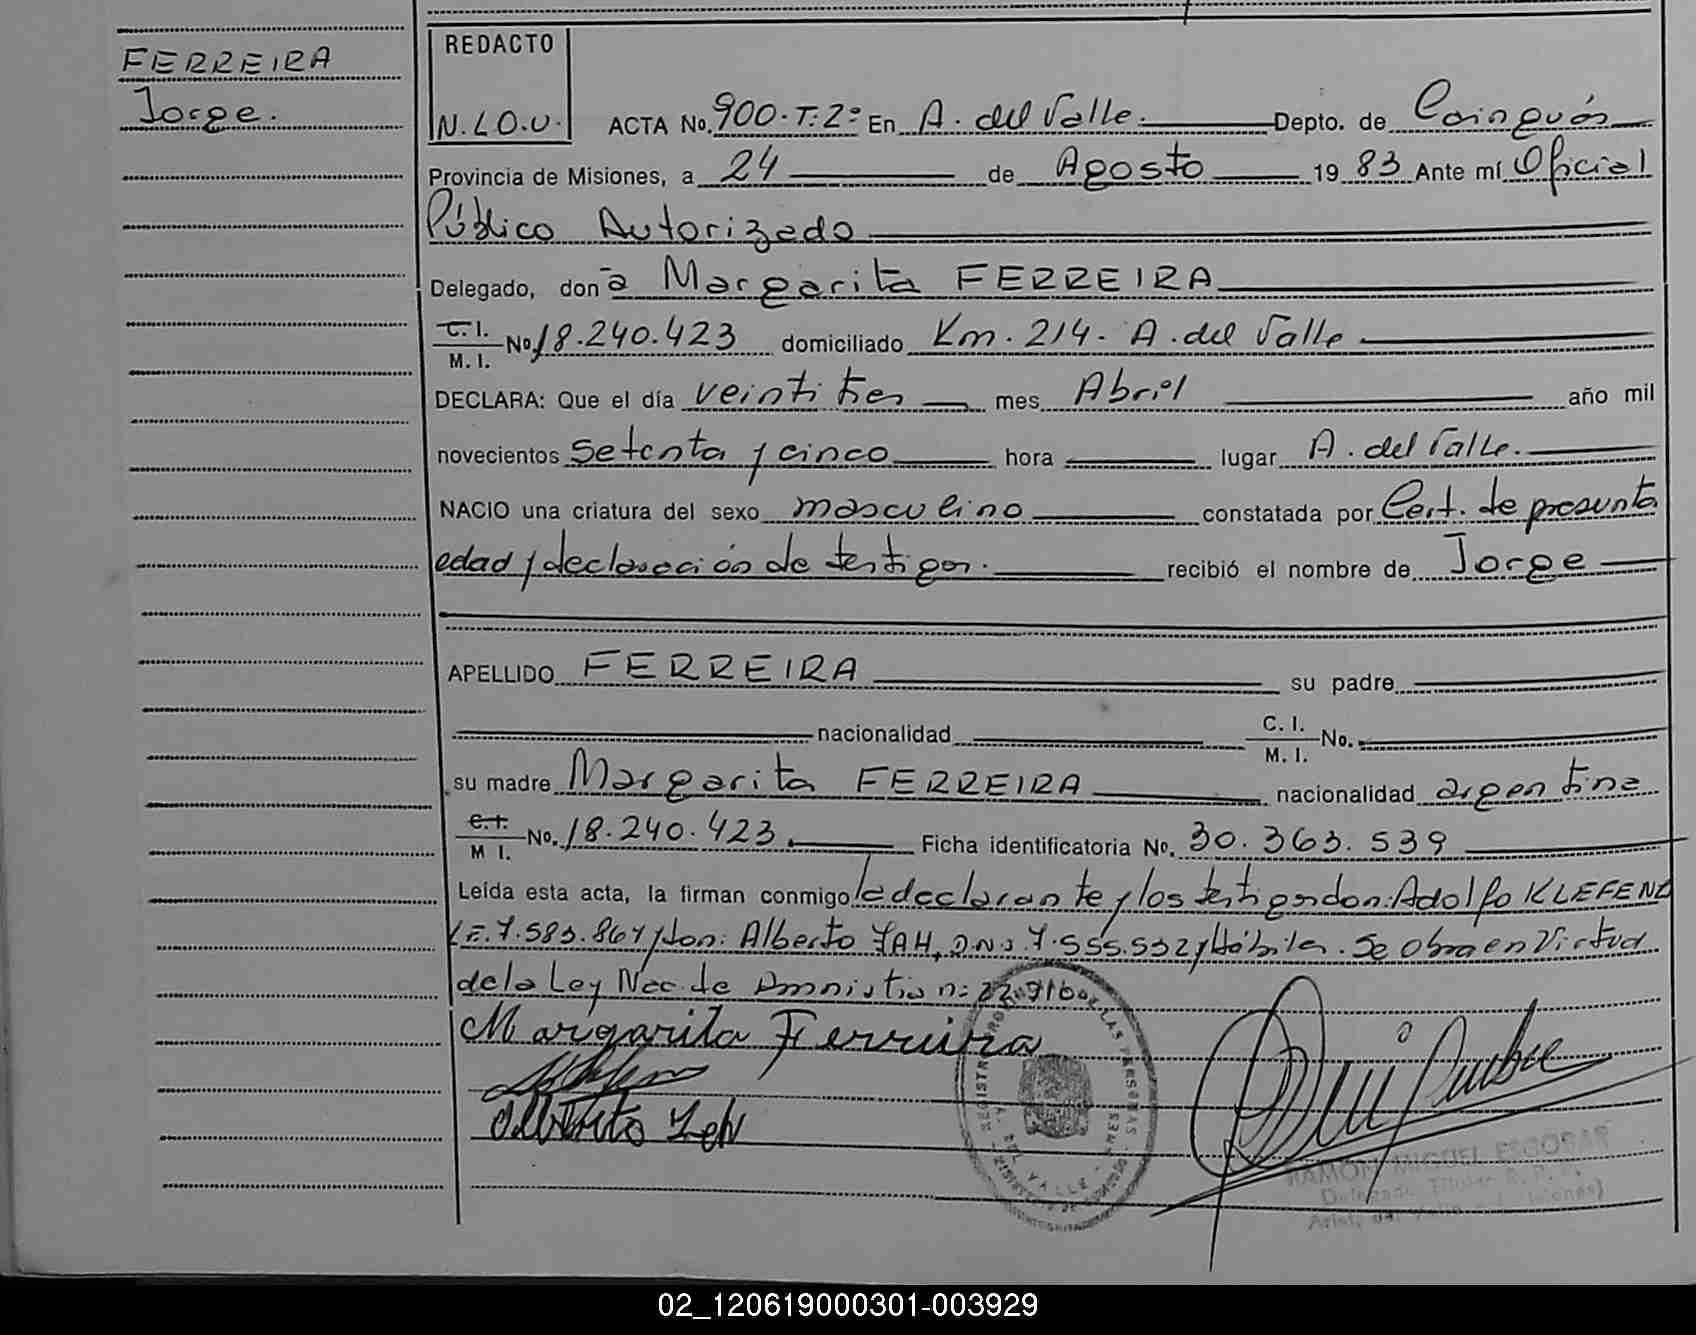 FERREIRA
Jorge.
REDACTO
N.L.O.U.
ACTA No. 900. T: 2º En A. del Valle. Depto. de Cainguás
Provincia de Misiones, a 24 de Agosto 19 83 Ante mí Oficial
Público Autorizado
Delegado, don a Margarita FERREIRA
C. I. M. I. No. 18.240.423 domiciliado Km. 214. A. del Valle
DECLARA: Que el día veintitres mes Abril año mil
novecientos setenta y cinco hora lugar A. del Valle.
NACIO una criatura del sexo masculino constatada por Cert. de presunta
edad y declaración de testigos. recibió el nombre de Jorge
APELLIDO FERREIRA su padre
nacionalidad C. I. M. I. No.
su madre Margarita FERREIRA nacionalidad argentina
C. I. M I. No. 18.240.423. Ficha identificatoria No. 30.363.539
Leída esta acta, la firman conmigo la declarante y los testigos don: Adolfo KLEFEND
L.E. 7.583.864 y don: Alberto ZAH, D.N.I. 7.555.532 y Hábiles. Se obra en Virtud
de la Ley Nac. de Amnistia n: 22.916
Margarita Ferreira
Alberto Zah
REGISTRO DE LAS PERSONAS
DEL VALLE
RAMON MIGUEL ESCOBAR
Delegado Titular
02_120619000301-003929